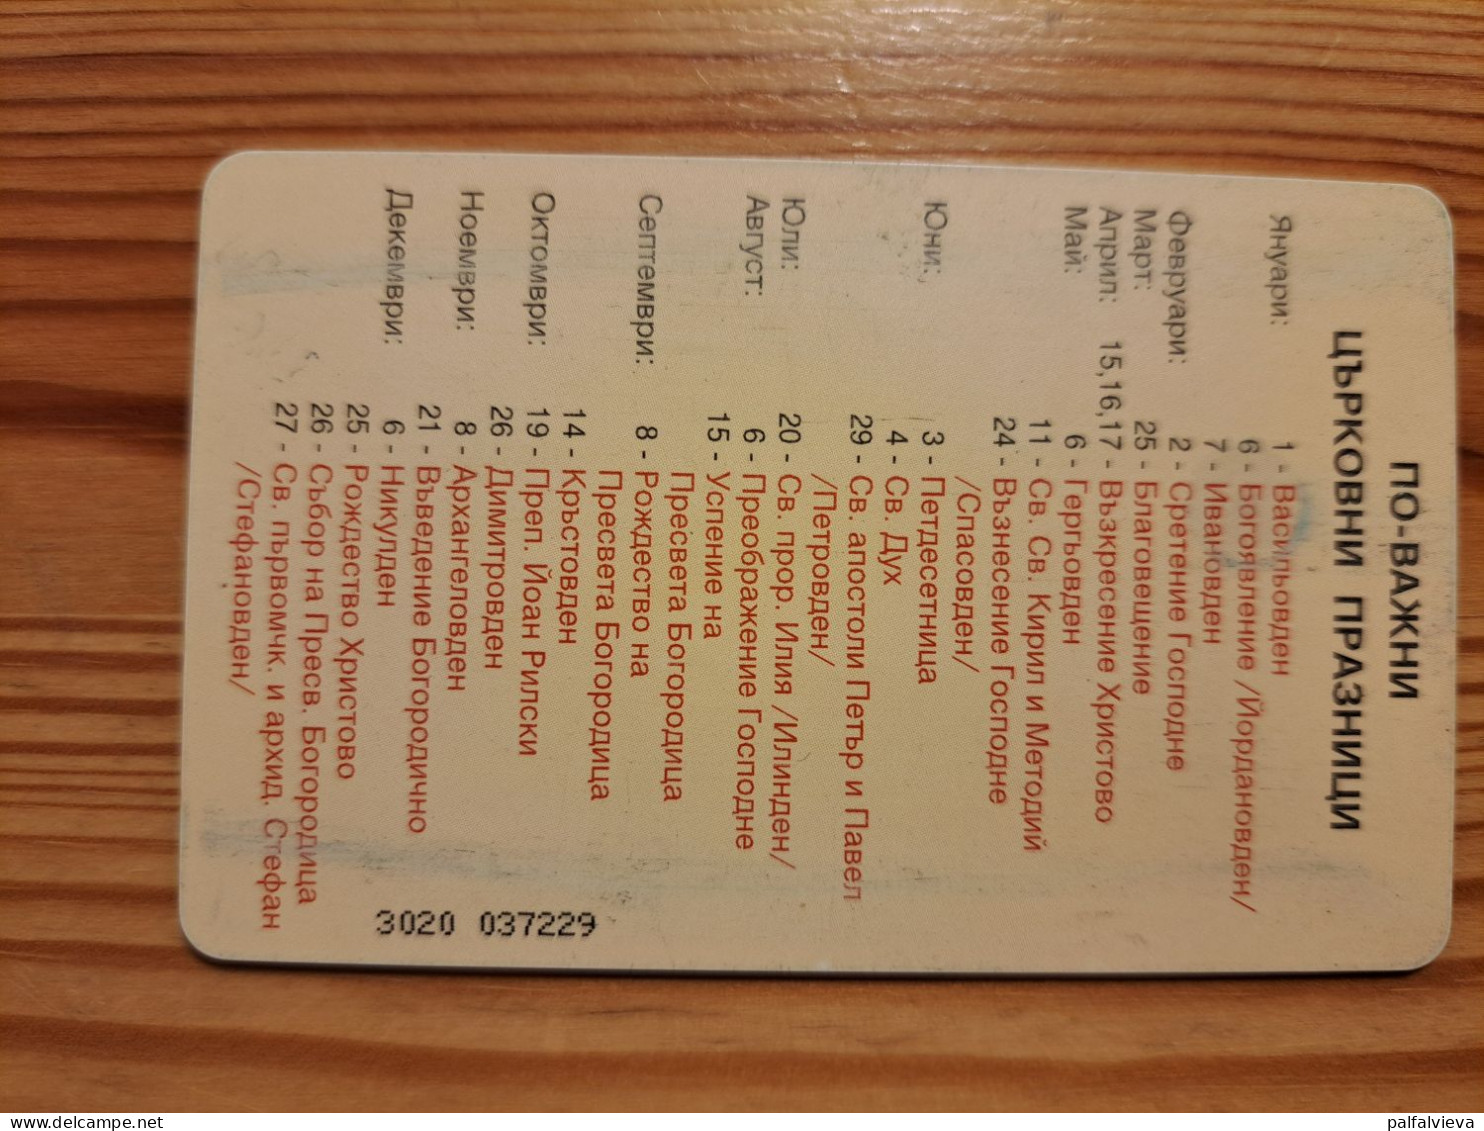 ПО-ВАЖНИ
ЦЪРКОВНИ ПРАЗНИЦИ
Януари: 1 - Васильовден
6 - Богоявление /Йордановден/
7 - Ивановден
Февруари: 2 - Сретение Господне
Март: 25 - Благовещение
Април: 15,16,17 - Възкресение Христово
Май: 6 - Гергьовден
11 - Св. Св. Кирил и Методий
24 - Възнесение Господне
/Спасовден/
Юни: 3 - Петдесетница
4 - Св. Дух
29 - Св. апостоли Петър и Павел
/Петровден/
Юли: 20 - Св. прор. Илия /Илинден/
Август: 6 - Преображение Господне
15 - Успение на
Пресвета Богородица
Септември: 8 - Рождество на
Пресвета Богородица
14 - Кръстовден
Октомври: 19 - Преп. Йоан Рилски
26 - Димитровден
Ноември: 8 - Архангеловден
21 - Въведение Богородично
Декември: 6 - Никулден
25 - Рождество Христово
26 - Събор на Пресв. Богородица
27 - Св. първомчк. и архид. Стефан
/Стефановден/
3020 037229
delcampe.net
palfalvieva